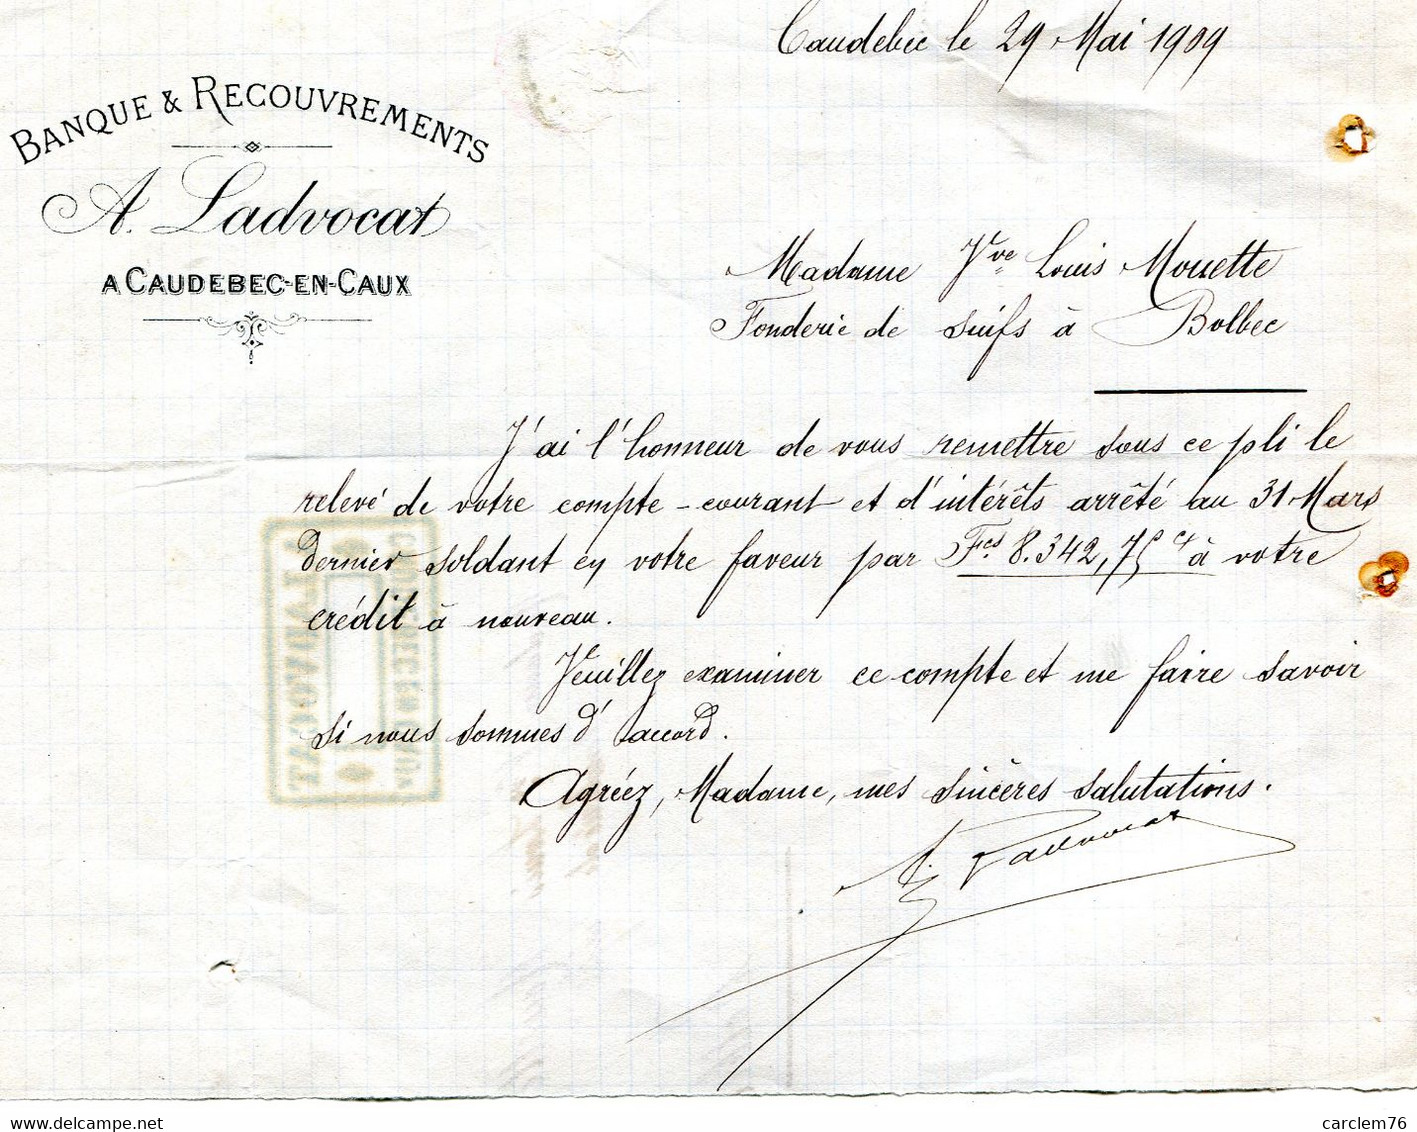 Caudebec le 29 Mai 1909
BANQUE & RECOUVREMENTS
A. Ladvocat
A CAUDEBEC-EN-CAUX
Madame Vve Louis Mouette
Fonderie de suifs à Bolbec
J'ai l'honneur de vous remettre sous ce pli le
relevé de votre compte-courant et d'intérêts arrêté au 31 Mars
dernier soldant en votre faveur par Fcs 8.342,75 cs à votre
crédit à nouveau.
Veuillez examiner ce compte et me faire savoir
si nous sommes d'accord.
Agréez, Madame, mes sincères salutations.
A. Ladvocat
CAUDEBEC EN CAUX
A. LADVOCAT
www.delcampe.net
carclem76